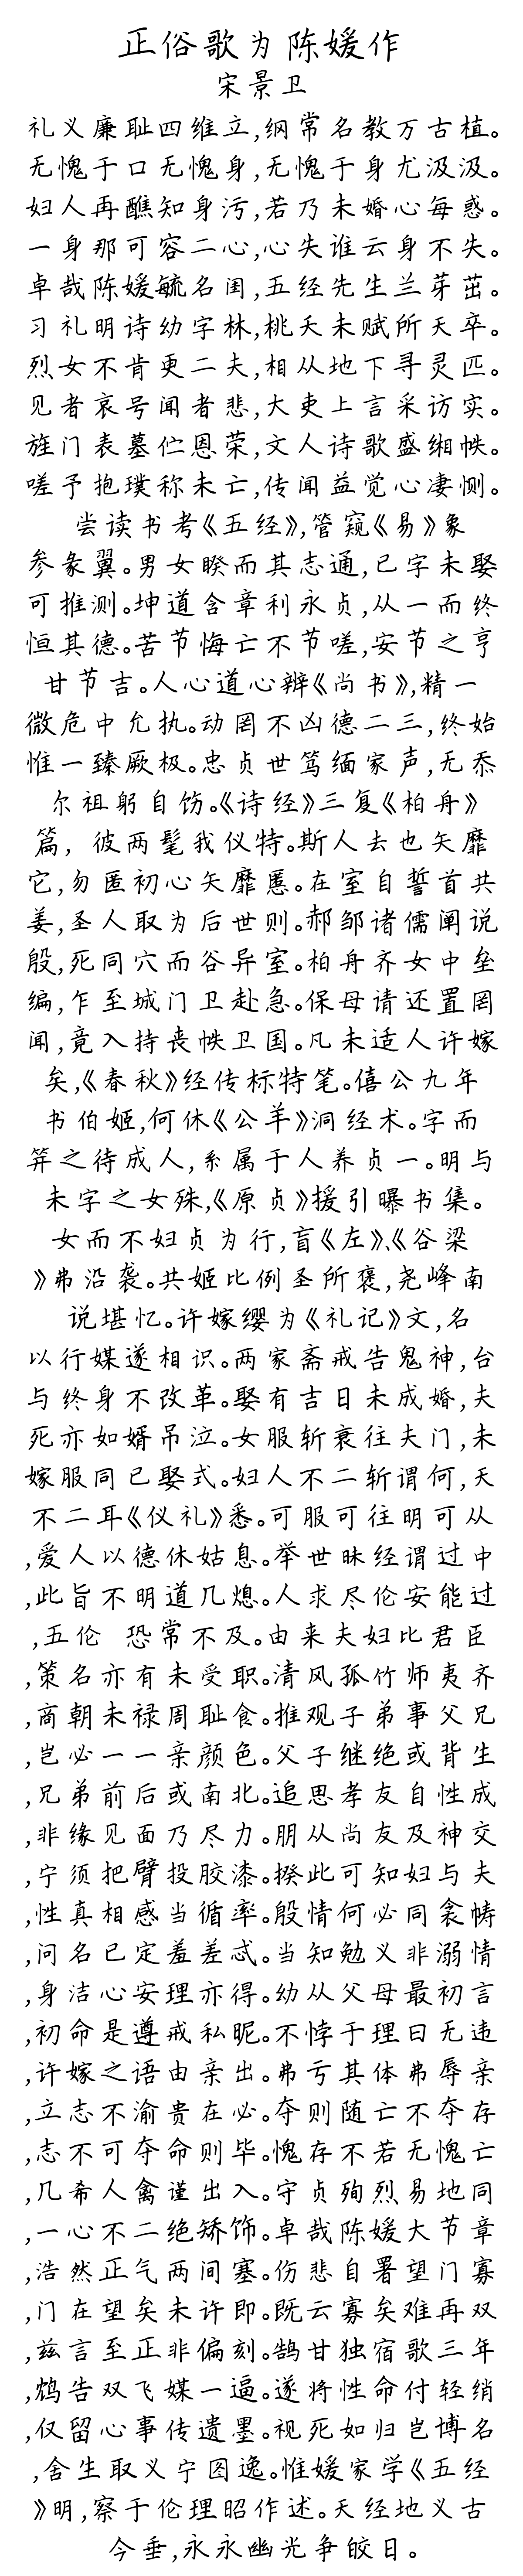 正俗歌为陈媛作
宋景卫
礼义廉耻四维立,纲常名教万古植。
无愧于口无愧身,无愧于身尤汲汲。
妇人再醮知身污,若乃未婚心每惑。
一身那可容二心,心失谁云身不失。
卓哉陈媛毓名闺,五经先生兰芽茁。
习礼明诗幼字林,桃夭未赋所天卒。
烈女不肯更二夫,相从地下寻灵匹。
见者哀号闻者悲,大吏上言采访实。
旌门表墓伫恩荣,文人诗歌盛缃帙。
嗟予抱璞称未亡,传闻益觉心凄恻。
尝读书考《五经》,管窥《易》象
参彖翼。男女睽而其志通,已字未娶
可推测。坤道含章利永贞,从一而终
恒其德。苦节悔亡不节嗟,安节之亨
甘节吉。人心道心辨《尚书》,精一
微危中允执。动罔不凶德二三,终始
惟一臻厥极。忠贞世笃缅家声,无忝
尔祖躬自饬。《诗经》三复《柏舟》
篇, 彼两髦我仪特。斯人去也矢靡
它,勿匿初心矢靡慝。在室自誓首共
姜,圣人取为后世则。郝邹诸儒阐说
殷,死同穴而谷异室。柏舟齐女中垒
编,乍至城门卫赴急。保母请还置罔
闻,竟入持丧帙卫国。凡未适人许嫁
矣,《春秋》经传标特笔。僖公九年
书伯姬,何休《公羊》洞经术。字而
笄之待成人,系属于人养贞一。明与
未字之女殊,《原贞》援引曝书集。
女而不妇贞为行,盲《左》、《谷梁
》弗沿袭。共姬比例圣所褒,尧峰南
说堪忆。许嫁缨为《礼记》文,名
以行媒遂相识。两家斋戒告鬼神,台
与终身不改革。娶有吉日未成婚,夫
死亦如婿吊泣。女服斩衰往夫门,未
嫁服同已娶式。妇人不二斩谓何,天
不二耳《仪礼》悉。可服可往明可从
,爱人以德休姑息。举世昧经谓过中
,此旨不明道几熄。人求尽伦安能过
,五伦 恐常不及。由来夫妇比君臣
,策名亦有未受职。清风孤竹师夷齐
,商朝未禄周耻食。推观子弟事父兄
,岂必一一亲颜色。父子继绝或背生
,兄弟前后或南北。追思孝友自性成
,非缘见面乃尽力。朋从尚友及神交
,宁须把臂投胶漆。揆此可知妇与夫
,性真相感当循率。殷情何必同衾帱
,问名已定羞差忒。当知勉义非溺情
,身洁心安理亦得。幼从父母最初言
,初命是遵戒私昵。不悖于理曰无违
,许嫁之语由亲出。弗亏其体弗辱亲
,立志不渝贵在必。夺则随亡不夺存
,志不可夺命则毕。愧存不若无愧亡
,几希人禽谨出入。守贞殉烈易地同
,一心不二绝矫饰。卓哉陈媛大节章
,浩然正气两间塞。伤悲自署望门寡
,门在望矣未许即。既云寡矣难再双
,兹言至正非偏刻。鹄甘独宿歌三年
,鸩告双飞媒一逼。遂将性命付轻绡
,仅留心事传遗墨。视死如归岂博名
,舍生取义宁图逸。惟媛家学《五经
》明,察于伦理昭作述。天经地义古
今垂,永永幽光争皎日。